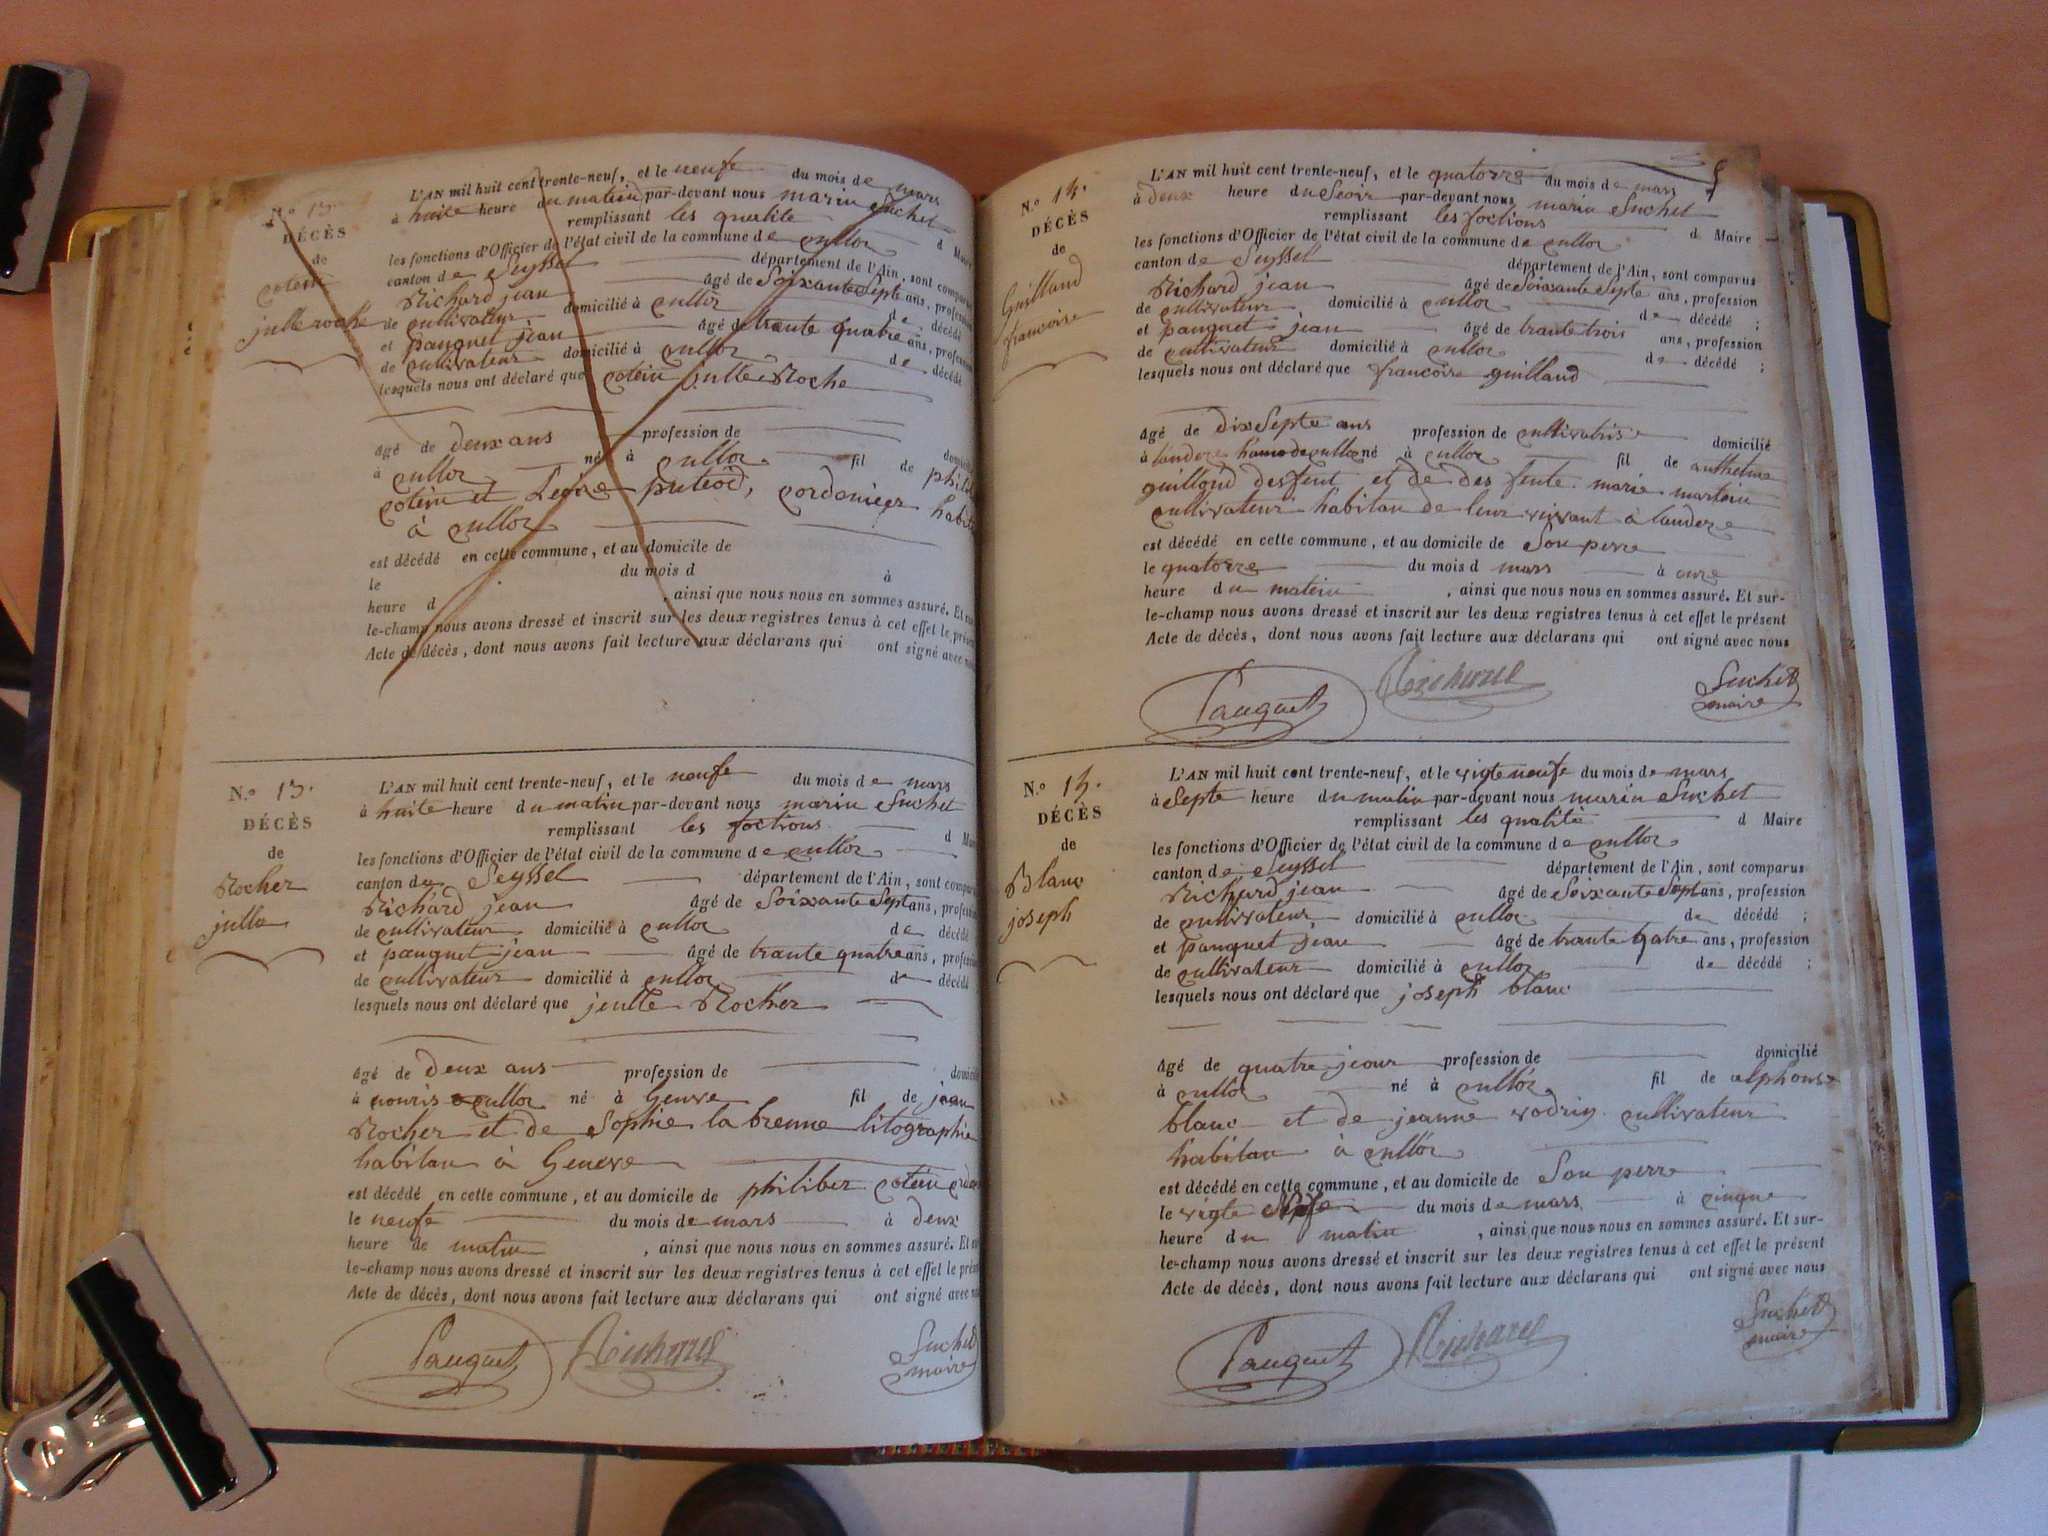 N.º 13.
DÉCÈS
de
cotein
julle roche
L'AN mil huit cent trente-neuf, et le neufe du mois de mars
à huite heure du matin par-devant nous marin Suchet
remplissant les qualite d Maire
les fonctions d'Officier de l'état civil de la commune de culloz
canton de Seyssel département de l'Ain, sont comparus
Richard jean âgé de Soixante Septe ans, profession
de cultivateur domicilié à culloz de décédé
et pauguet jean âgé de trante quatre ans, profession
de cultivateur domicilié à culloz de décédé
lesquels nous ont déclaré que cotein julle Roche
âgé de deux ans profession de
à culloz né à culloz fil de
cotein et cordonier
à culloz
est décédé en cette commune, et au domicile de
le du mois d à
heure d , ainsi que nous nous en sommes assuré. Et
le-champ nous avons dressé et inscrit sur les deux registres tenus à cet effet le présent
Acte de décès, dont nous avons fait lecture aux déclarans qui ont signé avec
N.º 13.
DÉCÈS
de
Rocher
julle
L'AN mil huit cent trente-neuf, et le neufe du mois de mars
à huite heure du matin par-devant nous marin Suchet
remplissant les foctions d
les fonctions d'Officier de l'état civil de la commune de culloz
canton de Seyssel département de l'Ain, sont
Richard jean âgé de Soixante Sept ans,
de cultivateur domicilié à culloz de décédé
et pauguet jean âgé de trante quatre ans,
de cultivateur domicilié à culloz de décédé
lesquels nous ont déclaré que jeulle Rocher
âgé de deux ans profession de
à nouris a culloz né à Genve fil de jean
Rocher et de Sophie la brenne litographie
habitan à Geneve
est décédé en cette commune, et au domicile de philiber cotein
le neufe du mois de mars à deux
heure de matin , ainsi que nous nous en sommes assuré. Et
le-champ nous avons dressé et inscrit sur les deux registres tenus à cet effet le
Acte de décès, dont nous avons fait lecture aux déclarans qui ont signé avec
Pauguet Richard Suchet
maire
N.º 14.
DÉCÈS
de
Guilland
francoise
L'AN mil huit cent trente-neuf, et le quatorze du mois de mars
à deux heure du Seoir par-devant nous marin Suchet
remplissant les foctions d Maire
les fonctions d'Officier de l'état civil de la commune de culloz
canton de Seyssel département de l'Ain, sont comparus
Richard jean âgé de Soixante Septe ans, profession
de cultivateur domicilié à culloz de décédé ;
et pauguet jean âgé de trante trois ans, profession
de cultivateur domicilié à culloz de décédé ;
lesquels nous ont déclaré que francoise guilland
âgé de dix Septe ans profession de cultivatrise domicilié
à landere hamo de culloz né à culloz fil de anthelme
guilland desfent et de des fente marie martein
cultivateur habitan de leur vivant à landere
est décédé en cette commune, et au domicile de Son perre
le quatorze du mois d mars à onze
heure du matein , ainsi que nous nous en sommes assuré. Et sur-
le-champ nous avons dressé et inscrit sur les deux registres tenus à cet effet le présent
Acte de décès, dont nous avons fait lecture aux déclarans qui ont signé avec nous
Pauguet Richard Suchet
maire
N.º 15.
DÉCÈS
de
Blanc
joseph
L'AN mil huit cent trente-neuf, et le vigte neufe du mois de mars
à Septe heure du matin par-devant nous marin Suchet
remplissant les qualite d Maire
les fonctions d'Officier de l'état civil de la commune de culloz
canton de Seyssel département de l'Ain, sont comparus
Richard jean âgé de Soixante Sept ans, profession
de cultivateur domicilié à culloz de décédé ;
et pauguet jean âgé de trante qatre ans, profession
de cultivateur domicilié à culloz de décédé ;
lesquels nous ont déclaré que joseph blanc
âgé de quatre jeour profession de domicilié
à culloz né à culloz fil de alphonse
blanc et de jeanne vodrin cultivateur
habitan à culloz
est décédé en cette commune, et au domicile de Son perre
le vigte Septe du mois de mars à cinque
heure du matin , ainsi que nous nous en sommes assuré. Et sur-
le-champ nous avons dressé et inscrit sur les deux registres tenus à cet effet le présent
Acte de décès, dont nous avons fait lecture aux déclarans qui ont signé avec nous
Pauguet Richard Suchet
maire